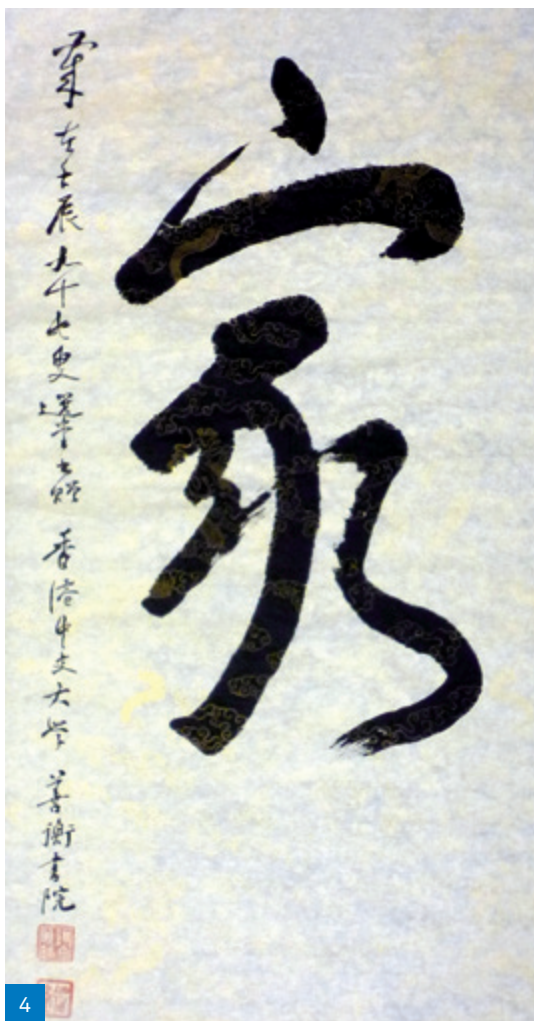 家
歲在壬辰九十七叟選堂書贈 香港中文大學 善衡書院
4